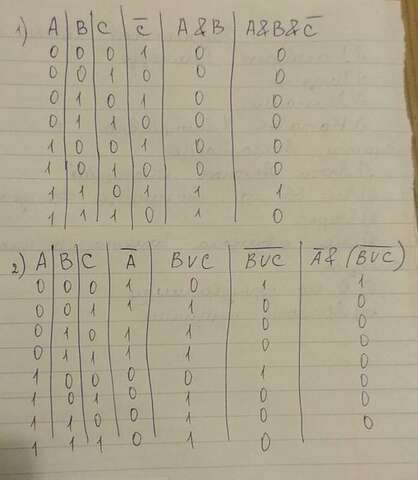 1) A B C C̅ A&B A&B&C̅
0 0 0 1 0 0
0 0 1 0 0 0
0 1 0 1 0 0
0 1 1 0 0 0
1 0 0 1 0 0
1 0 1 0 0 0
1 1 0 1 1 1
1 1 1 0 1 0
2) A B C A̅ B∨C B̅∨̅C̅ A̅&(B̅∨̅C̅)
0 0 0 1 0 1 1
0 0 1 1 1 0 0
0 1 0 1 1 0 0
0 1 1 1 1 0 0
1 0 0 0 0 1 0
1 0 1 0 1 0 0
1 1 0 0 1 0 0
1 1 1 0 1 0 0